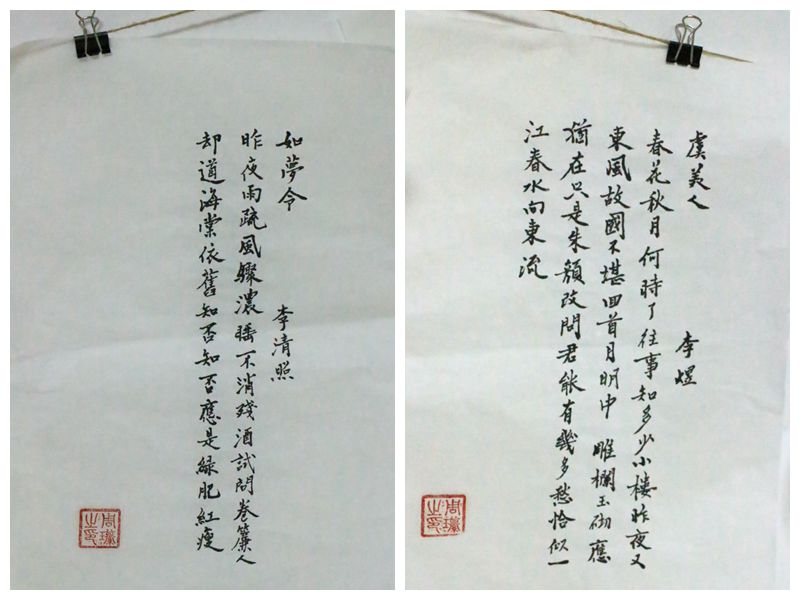 如夢令 李清照
昨夜雨疏風驟濃睡不消殘酒試問卷簾人
却道海棠依舊知否知否應是綠肥紅瘦
虞美人 李煜
春花秋月何時了往事知多少小樓昨夜又
東風故國不堪回首月明中雕欄玉砌應
猶在只是朱顏改問君能有幾多愁恰似一
江春水向東流